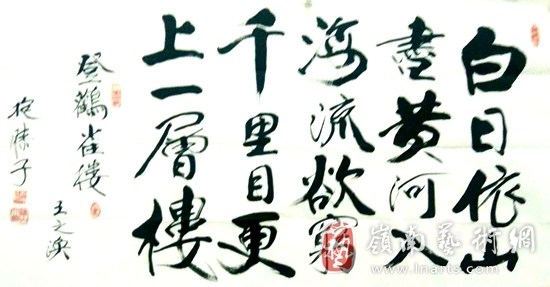 白日依山
盡黄河入
海流欲窮
千里目更
上一層樓
登鸛雀樓
王之渙
嶺南藝術網
www.lnarts.com